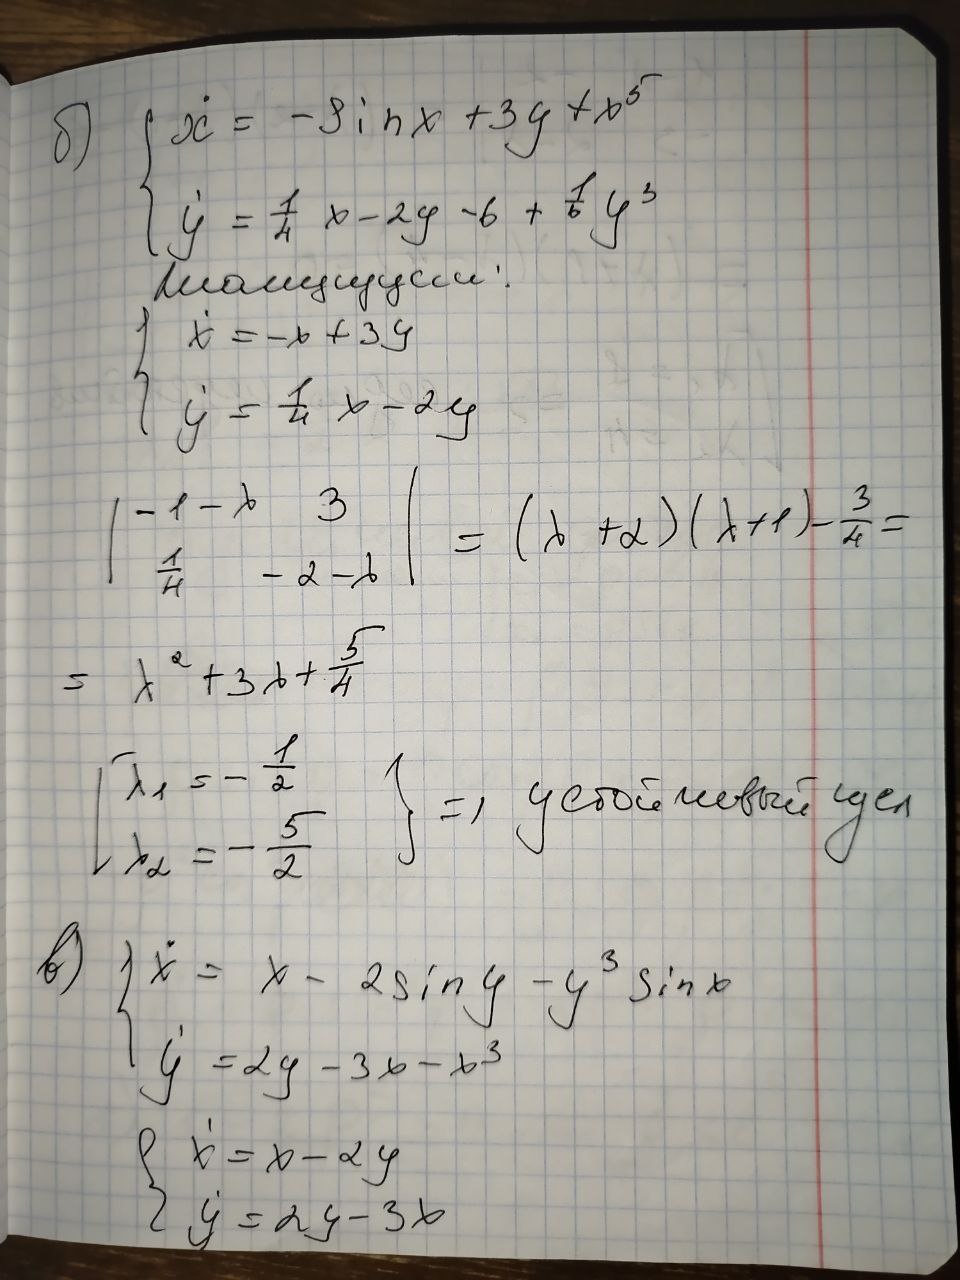 б) { ẋ = -sinx + 3y + x⁵
{ ẏ = 1/4 x - 2y - 6 + 1/6 y³
{ ẋ = -x + 3y
{ ẏ = 1/4 x - 2y
| -1-λ 3 |
| 1/4 -2-λ | = (λ+2)(λ+1) - 3/4 =
= λ² + 3λ + 5/4
[ λ₁ = -1/2
[ λ₂ = -5/2 } => устойчивый узел
в) { ẋ = x - 2siny - y³ sinx
{ ẏ = 2y - 3x - x³
{ ẋ = x - 2y
{ ẏ = 2y - 3x